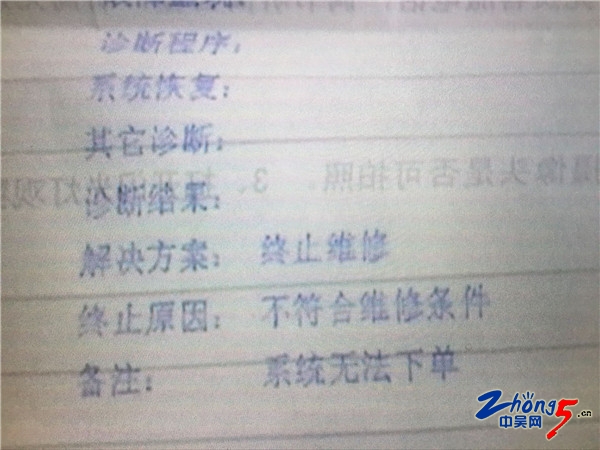 诊断程序:
系统恢复:
其它诊断:
诊断结果:
解决方案: 终止维修
终止原因: 不符合维修条件
备注: 系统无法下单
摄像头是否可拍照。 3、打开闪光灯观
Zhong5.cn
中吴网